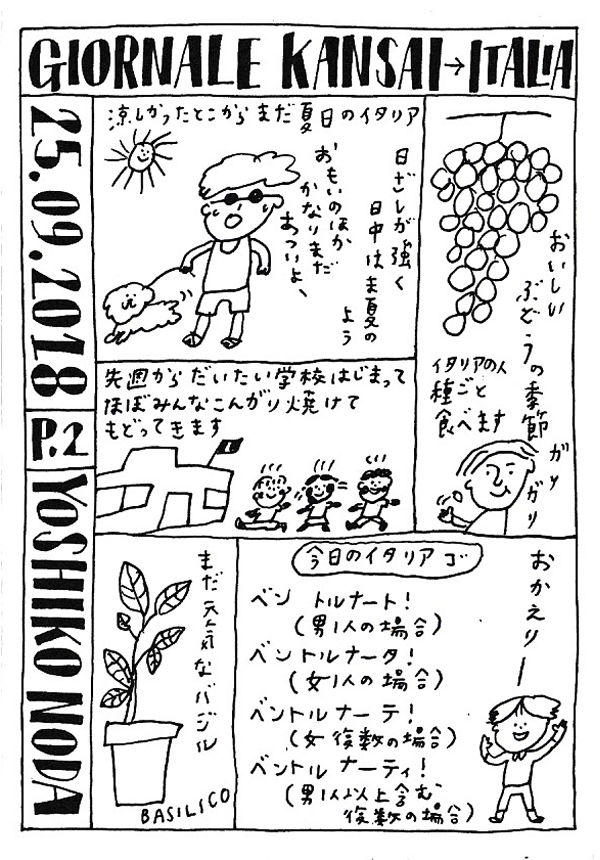 GIORNALE KANSAI→ITALIA
25.09.2018
P.2
YOSHIKO NODA
涼しかったとこからまだ夏日のイタリア
日ざしが強く
日中は真夏の
よう
おもいのほか
かなりまだ
あついよ、
おいしい
ぶどうの季節
イタリアの人
種ごと
食べます
ガリ
ガリ
先週からだいたい学校はじまって
ほぼみんなこんがり焼けて
もどってきます
まだ元気なバジル
BASILICO
今日のイタリアゴ
ベン トルナート!
(男1人の場合)
ベントルナータ!
(女1人の場合)
ベントルナーテ!
(女 複数の場合)
ベントルナーティ!
(男1人以上含む
複数の場合)
おかえりー